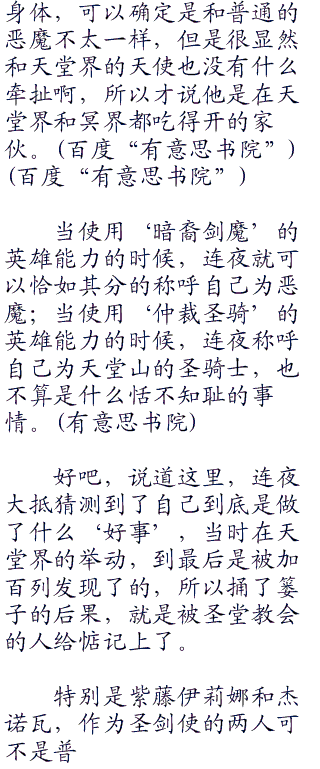 身体，可以确定是和普通的
恶魔不太一样，但是很显然
和天堂界的天使也没有什么
牵扯啊，所以才说他是在天
堂界和冥界都吃得开的家
伙。(百度“有意思书院”)
(百度“有意思书院”)
当使用‘暗裔剑魔’的
英雄能力的时候，连夜就可
以恰如其分的称呼自己为恶
魔；当使用‘仲裁圣骑’的
英雄能力的时候，连夜称呼
自己为天堂山的圣骑士，也
不算是什么恬不知耻的事
情。(有意思书院)
好吧，说道这里，连夜
大抵猜测到了自己到底是做
了什么‘好事’，当时在天
堂界的举动，到最后是被加
百列发现了的，所以捅了篓
子的后果，就是被圣堂教会
的人给惦记上了。
特别是紫藤伊莉娜和杰
诺瓦，作为圣剑使的两人可
不是普